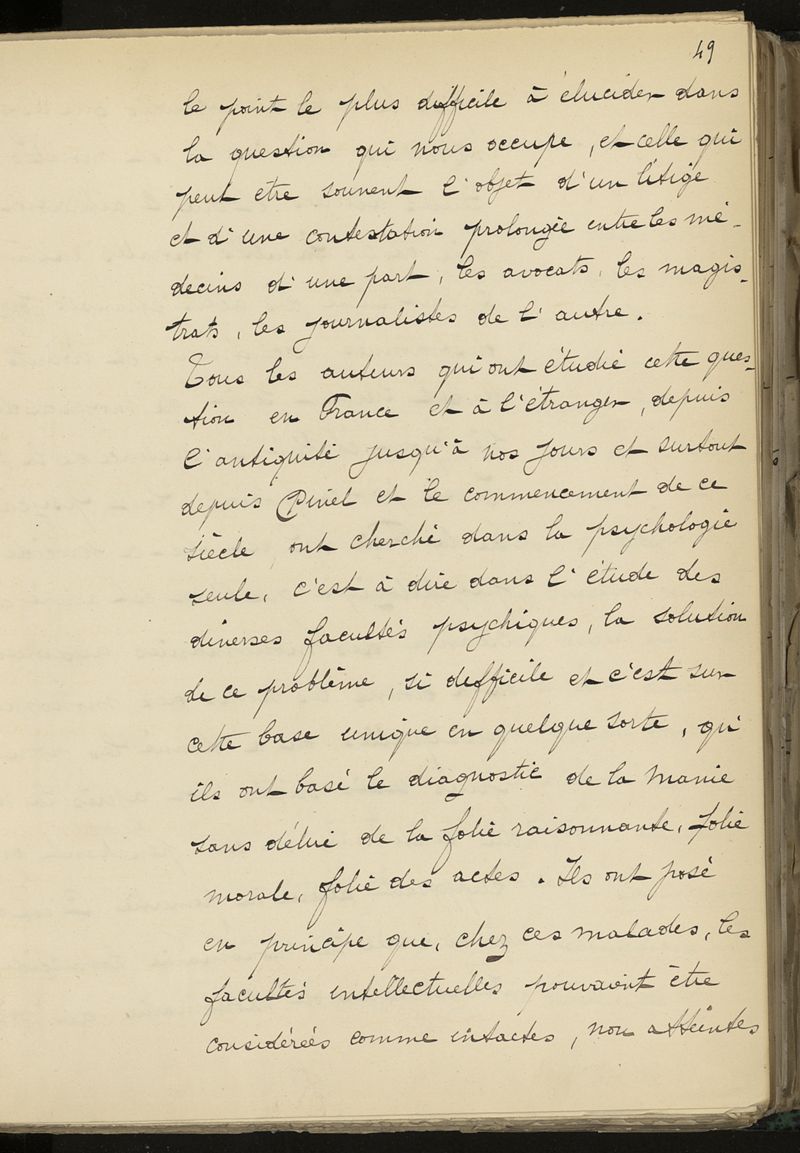 49
le point le plus difficile à élucider dans
la question qui nous occupe, et celle qui
peut etre souvent l'objet d'un litige
et d'une contestation prolongée entre les mé-
decins d'une part, les avocats, les magis-
trats, les journalistes de l'autre.
Tous les auteurs qui ont étudié cette ques-
tion en France et à l'étranger, depuis
l'antiquité jusqu'à nos jours et surtout
depuis Pinel et le commencement de ce
siècle, ont cherché dans la psychologie
seule, c'est à dire dans l'étude des
diverses facultés psychiques, la solution
de ce problème, si difficile et c'est sur
cette base unique en quelque sorte, qu'
ils ont basé le diagnostic de la manie
sans délire de la folie raisonnante, folie
morale, folie des actes. Ils ont posé
en principe que, chez ces malades, les
facultés intellectuelles pouvaient être
considérées comme intactes, non atteintes